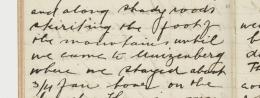 and along shady roads
skirting the foot of
the mountains until
we came to Muizenberg
where we stayed about
3/4 of an hour on the